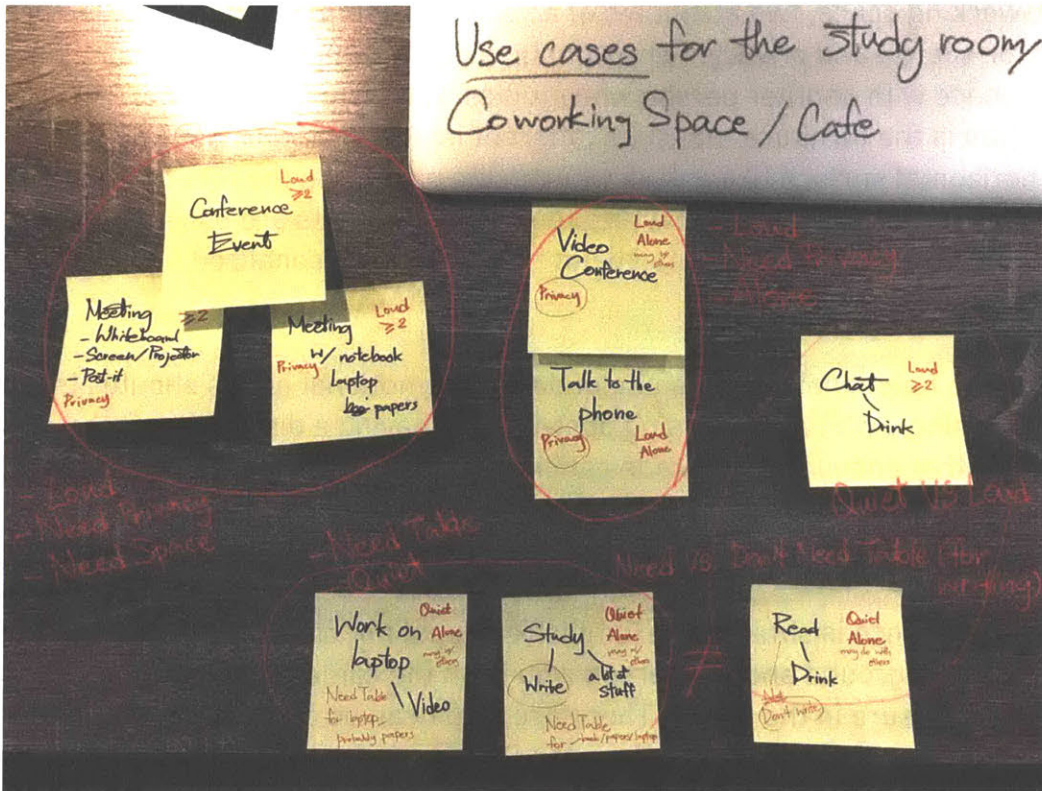 Use cases for the study room/
Coworking Space / Cafe
Conference
Event
Loud
≥2
Meeting
- Whiteboard
- Screen/Projector
- Post-it
≥2
Privacy
Meeting
w/ notebook
laptop
papers
Loud
≥2
Privacy
Video
Conference
Loud
Alone
may w/
others
Privacy
- Loud
- Need Privacy
- Alone
Talk to the
phone
Privacy
Loud
Alone
Chat
Drink
Loud
≥2
- Loud
- Need Privacy
- Need Space
- Need Table
- Quiet
Quiet VS Loud
Need VS. Don't Need Table (for
writing)
Work on
laptop
Video
Quiet
Alone
may w/
others
Need Table
for laptop
probably papers
Study
Write
a lot of
stuff
Quiet
Alone
may w/
others
Need Table
for book/papers/laptop
≠
Read
Drink
Quiet
Alone
may do with
others
Don't write